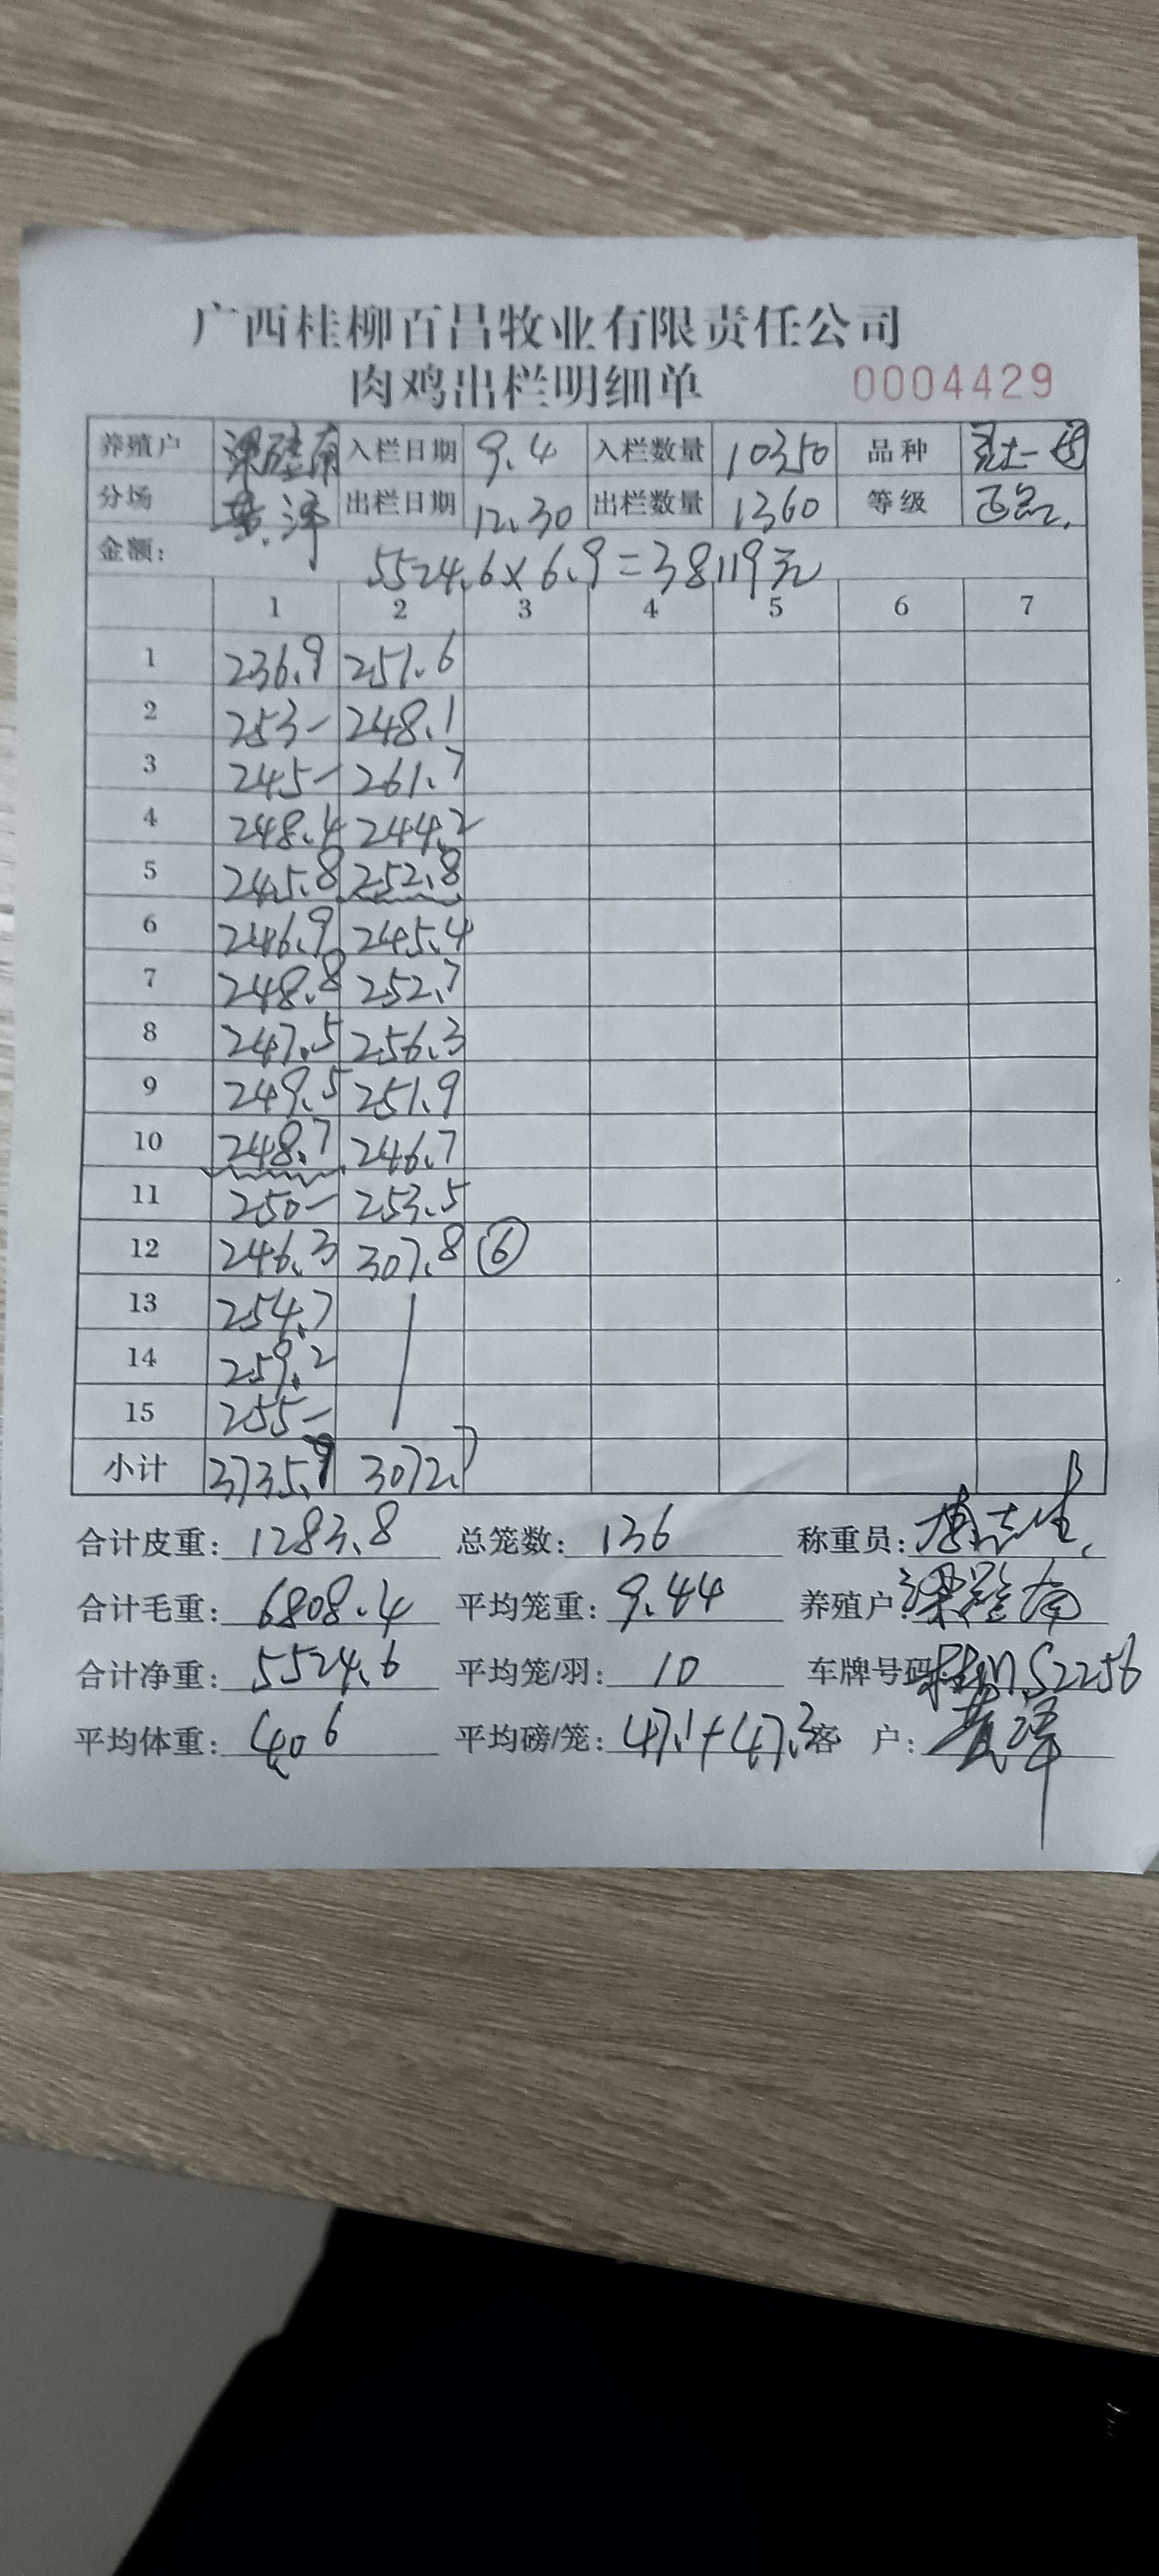 广西桂柳百昌牧业有限责任公司
肉鸡出栏明细单 0004429
养殖户 入栏日期 9.4 入栏数量 10350 品种
分场 出栏日期 12.30 出栏数量 1360 等级
金额: 5524.6×6.9=38119元
1 2 3 4 5 6 7
1 236.9 251.6
2 253- 248.1
3 245- 261.7
4 248.4 244.2
5 245.8 252.8
6 246.9 245.4
7 248.8 252.7
8 247.5 256.3
9 249.5 251.9
10 248.7 246.7
11 250- 253.5
12 246.3 307.8 ⑥
13 254.7
14 259.2
15 255-
小计 3735.9 3072.7
合计皮重: 1283.8 总笼数: 136 称重员:
合计毛重: 6808.4 平均笼重: 9.44 养殖户:
合计净重: 5524.6 平均笼/羽: 10 车牌号码: S2256
平均体重: 4.06 平均磅/笼: 47.1+47.3 客户: